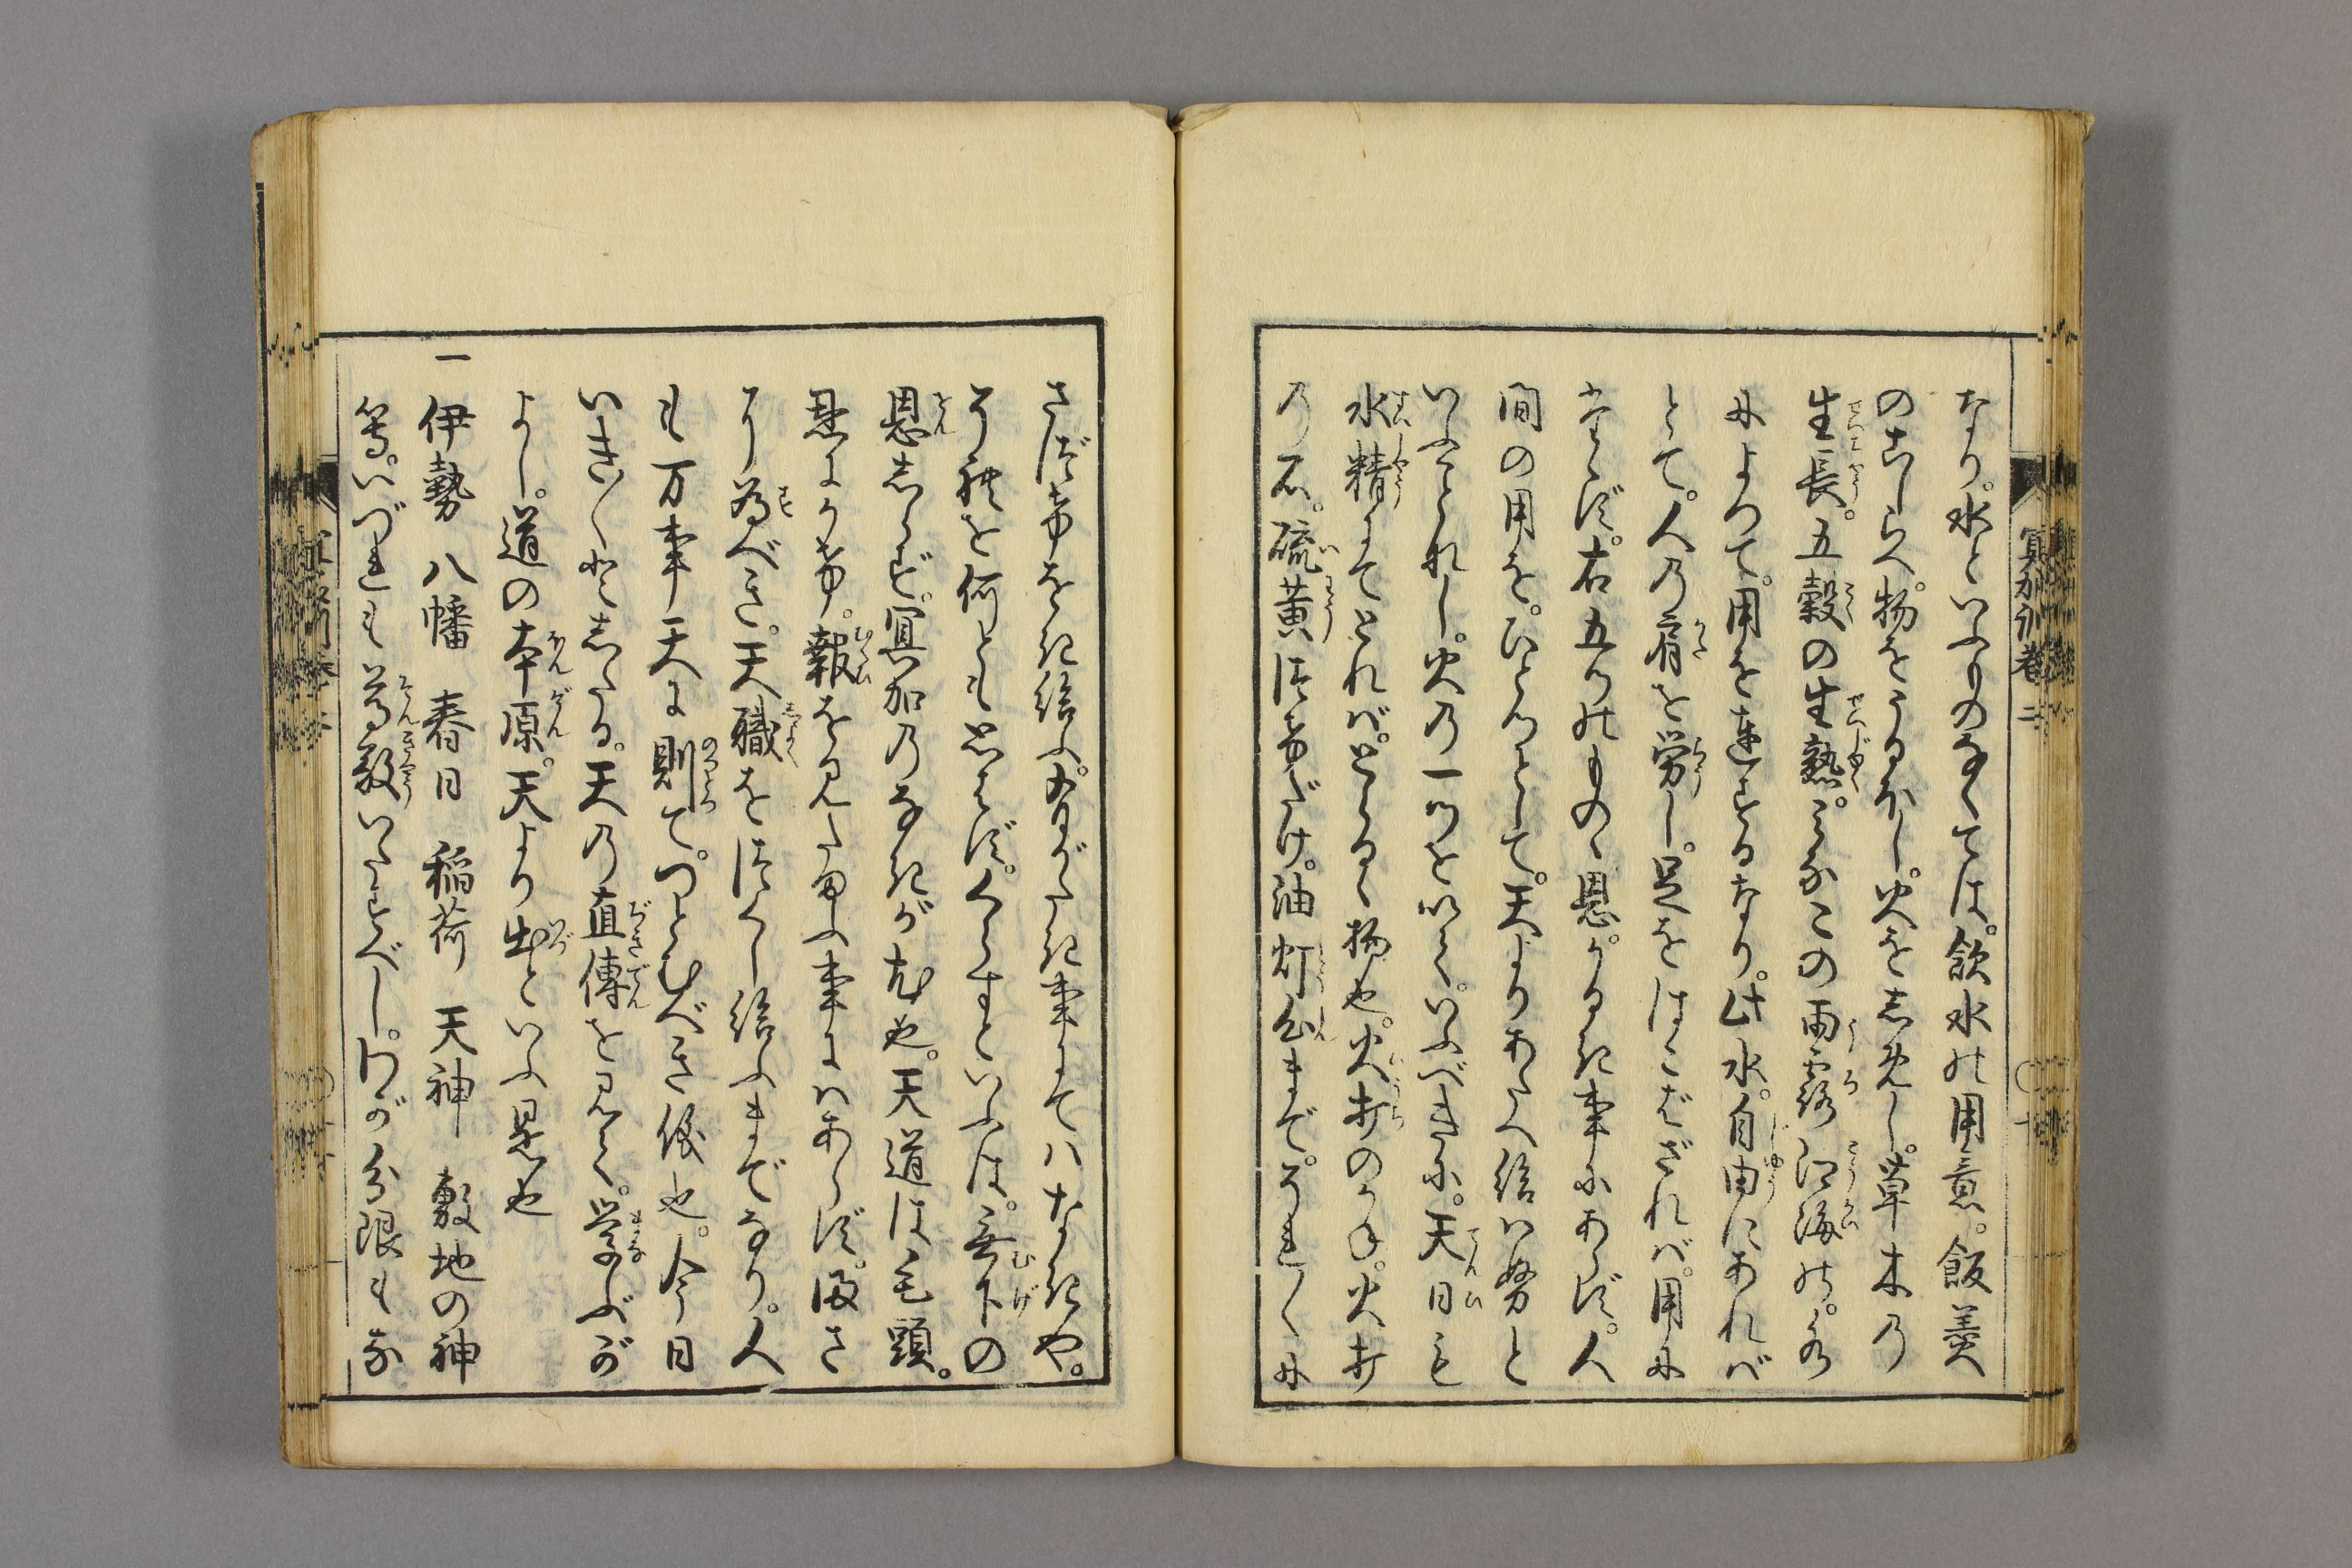 なり。水といふものなくては。飲水の用意。飯羹
のこしらへ。物をうるほし。火をしめし。草木の
生長。五穀の生熟。みなこの雨露江海の。水
によつて。用を達するなり。此水。自由にあれば
とて。人の肩を労し。足をはこばざれば。用に
たゝず。右五つのものゝ恩。かるき事にあらず。人
間の用を。ひとつとして。天よりあたへ給はぬと
いふことなし。火の一つを以て。いふべきに。天日も
水精にてとれば。とらるゝ物也。火打のかね。火打
の石。硫黄つけだけ。油灯心まで。それ〳〵に
さづけをき給ふ。ありがたき事にてはなきや。
その禮を何とも思はず。くらすといふは。無下の
恩しらず。冥加のなきが尤也。天道は毛頭。
恩にかけ。報を見たまふ事にはあらず。唯さ
やう為べき。天職をつくし給ふまでなり。人
も万事天に則て。つとむべき儀也。今日
いきいき〳〵としたる。天の直傳を見て。学ぶが
よし。道の本原。天より出といふ是也
一伊勢 八幡 春日 稲荷 天神 敷地の神
等。いづれも尊敬いたすべし。わが分限もな
冥加訓巻二